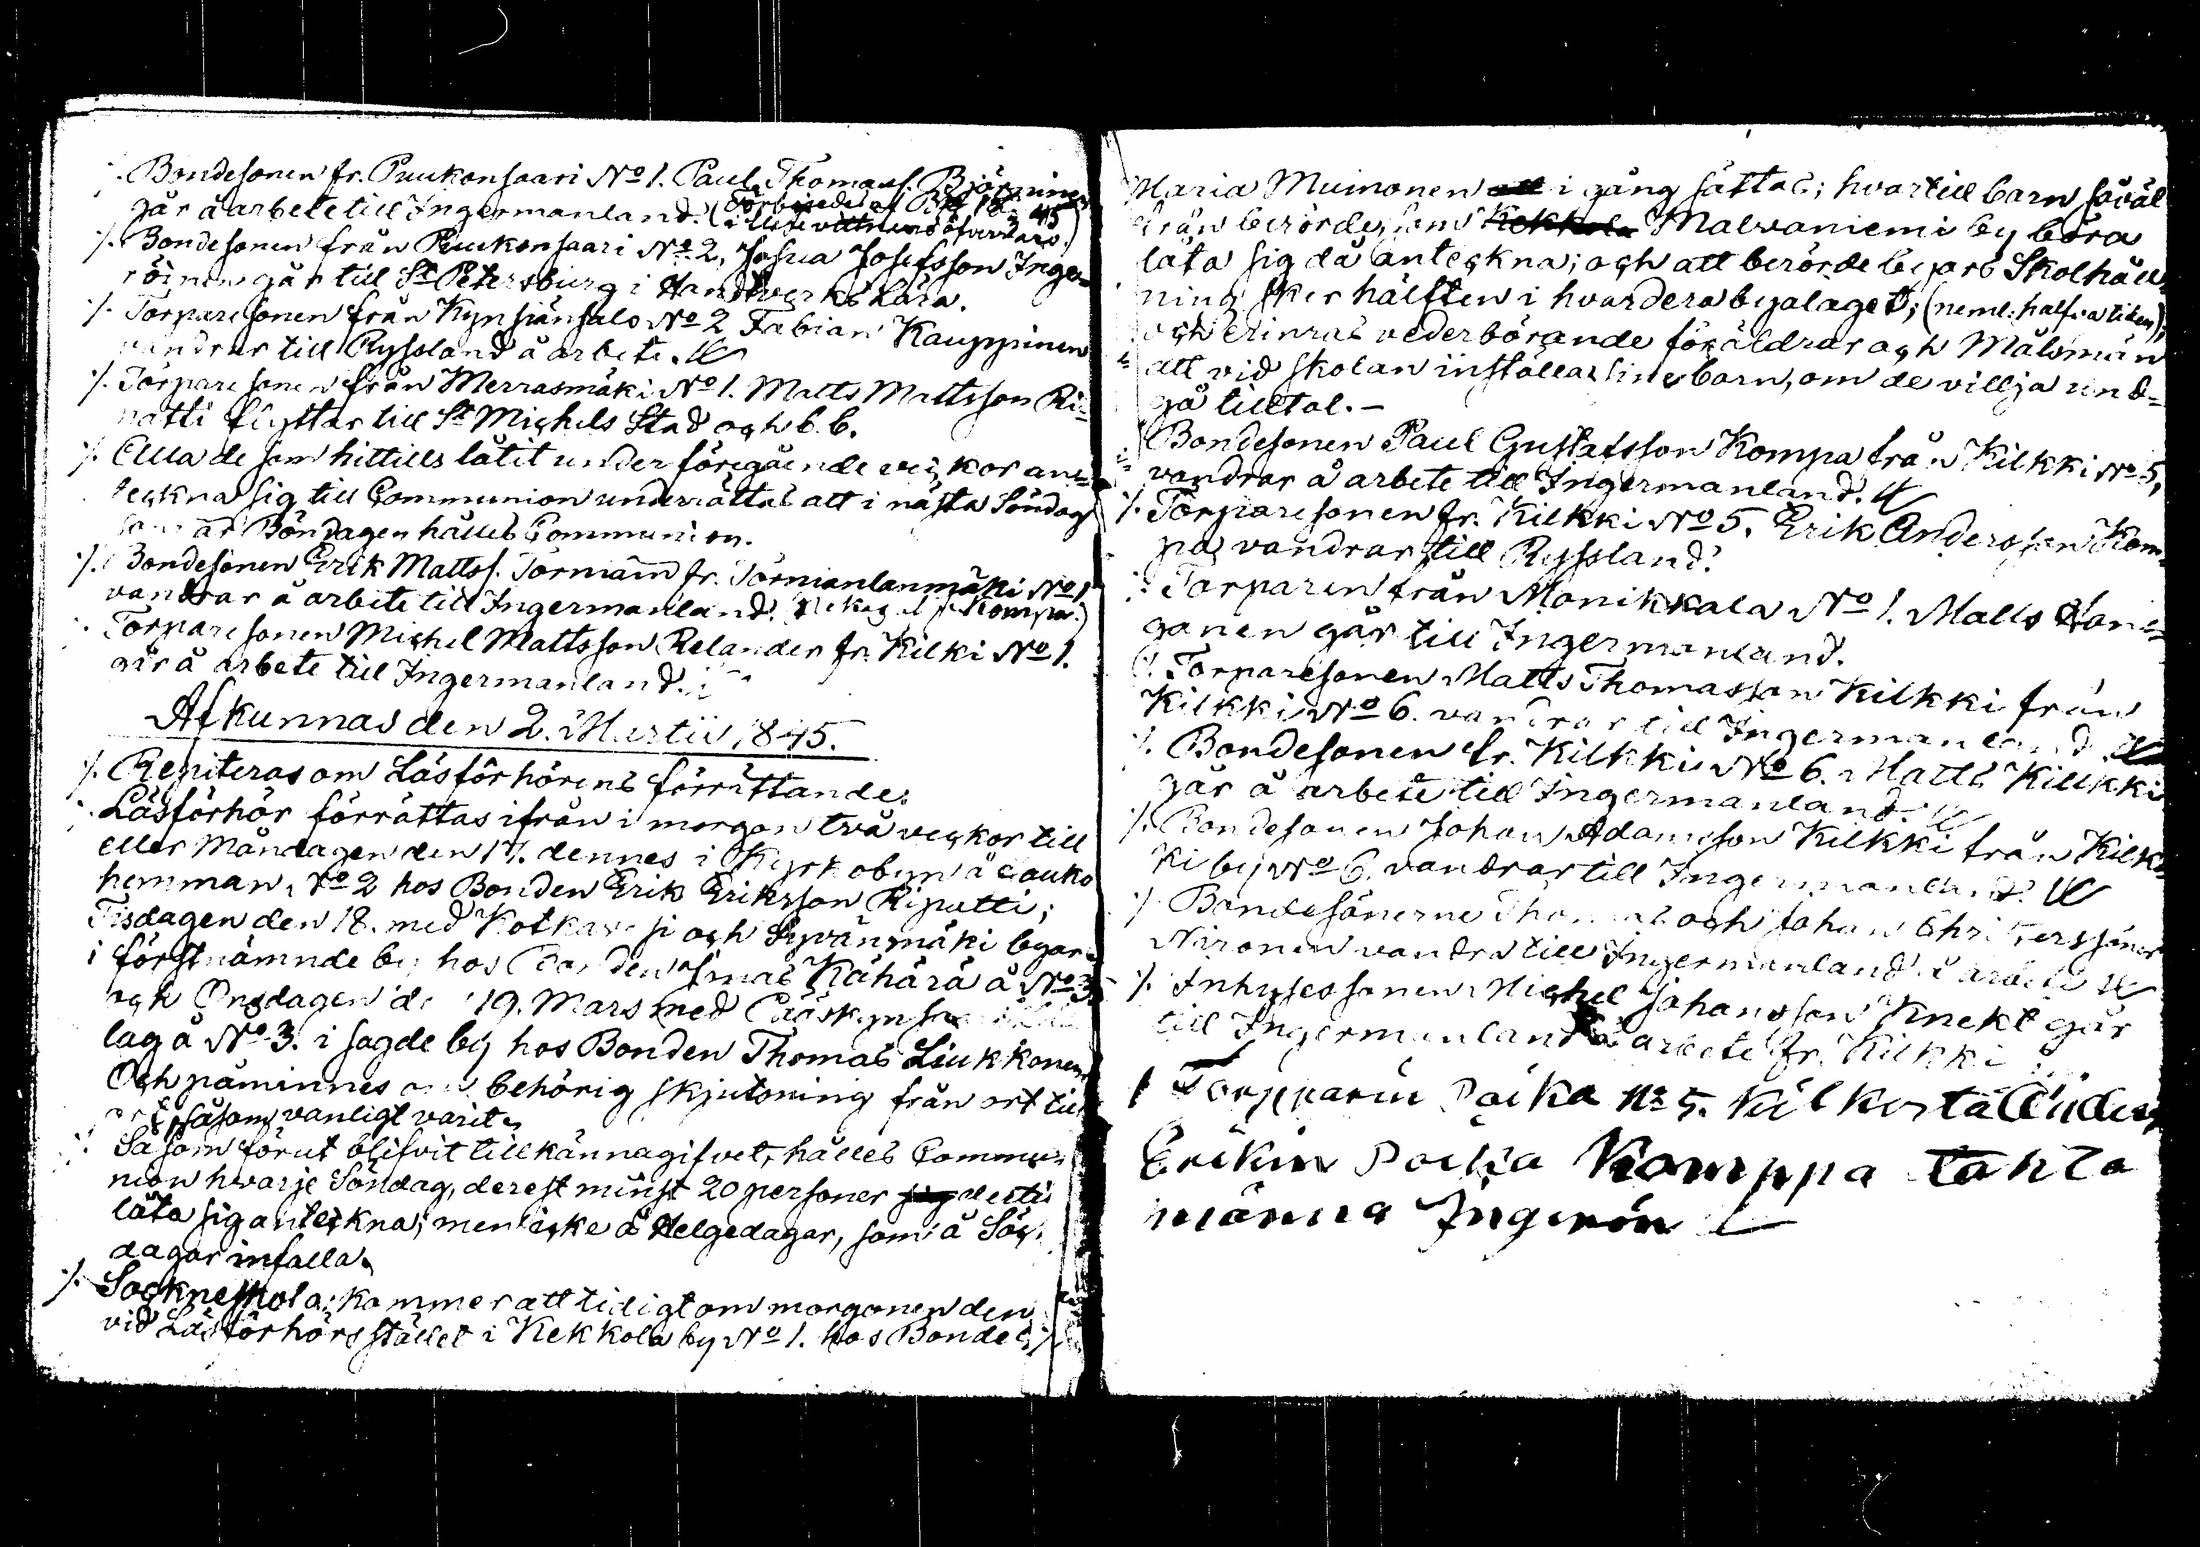 ·/. Bondesonen fr. Puukonsaari No 1. Paul Thomass. Björninen
går å arbete till Ingermanland.
·/. Bondesonen från Puukonsaari No 2, Josua Josefsson Inge-
röinen går till St Petersburg i Handtverks Lära.
·/. Torparesonen från Kynsiänsalo No 2 Fabian Kauppinen
vandrar till Ryssland å arbete.
·/. Torparesonen från Merrasmäki No 1. Matts Mattsson Ri-
patti flyttar till St Michels Stad och b.b.
·/. Alla de som hittills låtit under föregående veckor an-
teckna sig till Communion underrättas att i nästa Söndag
som är Böndagen hålles Communion.
·/. Bondesonen Erik Matts. Törniäin fr. Törnianlanmäki No 1
vandrar å arbete till Ingermanland.
·/. Torparesonen Michel Mattsson Relander fr. Kilki No 1.
går å arbete till Ingermanland.
Afkunnas den 2. Martii 1845.
·/. Repiteras om Läsförhörens förrättande.
·/. Läsförhör förrättas ifrån i morgon två veckor till
eller Måndagen den 17. dennes i Kyrkobyn å Louko
hemman, No 2 hos Bonden Erik Eriksson Ripatti;
Tisdagen den 18. med Kotkavesi och Syvänmäki byar
i förstnämnde by hos Bonden Kähärä å No 3
och Onsdagen den 19. Mars med
lag å No 3. i sagde by hos Bonden Thomas Liukkonen
Och påminnes om behörig skjutsning från ort till
ort, såsom vanligt varit.
·/. Såsom förut blifvit tillkännagifvet, hålles Commu-
nion hvarje Söndag, derest minst 20 personer dertill
låta sig anteckna; men icke å Helgedagar, som å Söc-
dagar infalla.
·/. Sockneskola kommer att tidigt om morgonen den
vid Läsförhörsstället i Kekkola by No 1. hos Bonde
Maria Muinonen i gång sättas; hvartill barn såväl
från berörde, som Kekkola Malvaniemi by böra
låta sig då anteckna; och att berörde byars Skolhåll-
ning sker hälften i hvardera byalaget; (neml. halfva tiden);
och erinras vederbörande föräldrar och Målsmän
att vid skolan inställa sine barn, om de villja und-
gå tilltal. –
·/. Bondesonen Paul Gustafsson Kompa från Kilkki No 5,
vandrar å arbete till Ingermanland.
·/. Torparesonen fr. Kilkki No 5. Erik Andersson Kom-
pa, vandrar till Ryssland.
·/. Torparen från Monikkala No 1. Matts Hon-
ganen går till Ingermanland.
·/. Torparesonen Matts Thomasson Kilkki från
Kilkki No 6. vandrar till Ingermanland
·/. Bondesonen fr. Kilkki No 6. Matts Kilkki
går å arbete till Ingermanland.
·/. Bondesonen Johan Adamsson Kilkki från Kilk-
ki by No 6. vandrar till Ingermanland.
·/. Bondesönerne Thomas och Johan Christerssöner
Nironen vandra till Ingermanland å arbete
·/. Inhysessonen Michel Johansson Knekt går
till Ingermanland å arbete fr. Kilkki
·/. Torpparin Poika No 5. Kilkistä
Erikin Poika Komppa tahto
männä Ingerin